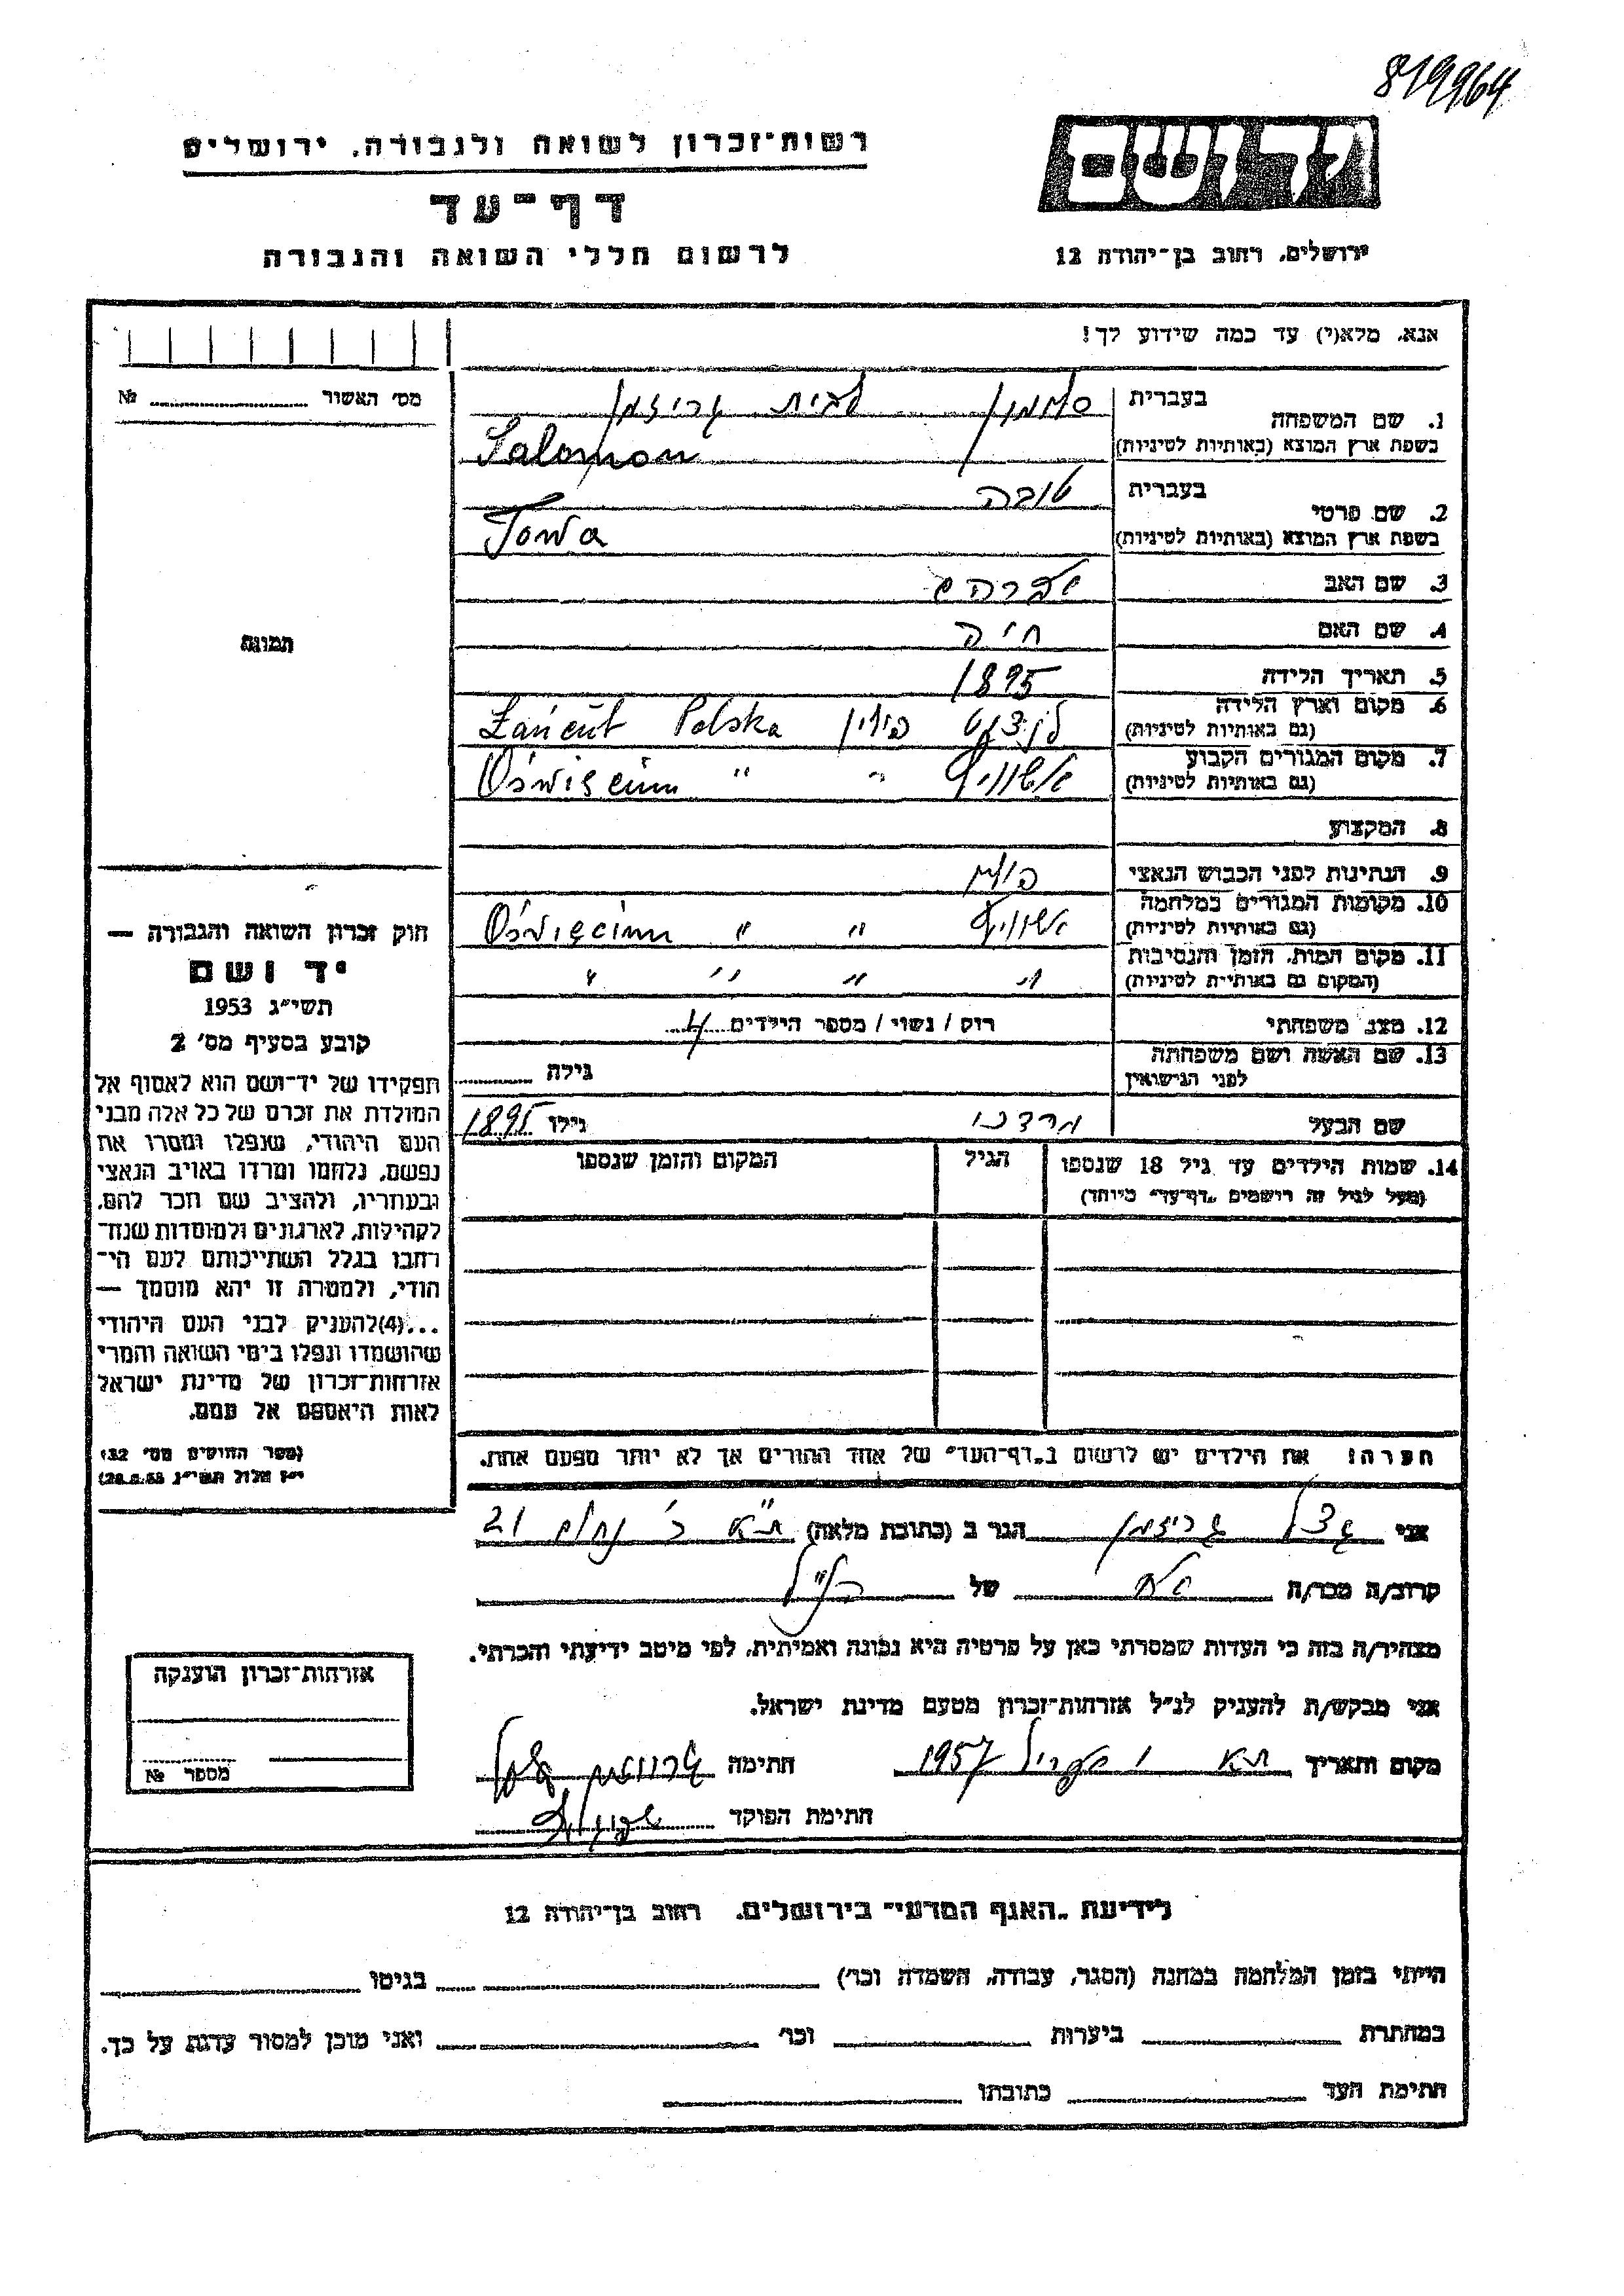 819964
רשות־זכרון לשואה ולגבורה, ירושלים
דף־עד
לרשום חללי השואה והגבורה
ידושם
ירושלים, רחוב בן־יהודה 12
אנא, מלא(י) עד כמה שידוע לך!
מס' האשור № ........
1. שם המשפחה בעברית סלומון לבית גרוזמן
בשפת ארץ המוצא (באותיות לטיניות) Salomon
2. שם פרטי בעברית טובה
בשפת ארץ המוצא (באותיות לטיניות) Towa
3. שם האב אפרים
4. שם האם חיה
5. תאריך הלידה 1895
6. מקום וארץ הלידה (גם באותיות לטיניות) לנצוט פולין Łańcut Polska
7. מקום המגורים הקבוע (גם באותיות לטיניות) " " Oświęcim
8. המקצוע
9. הנתינות לפני הכבוש הנאצי פולין
10. מקומות המגורים במלחמה (גם באותיות לטיניות) " " Oświęcim
11. מקום המות, הזמן והנסיבות (המקום גם באותיות לטיניות) " " " "
12. מצב משפחתי רוק / נשוי / מספר הילדים 4
13. שם האשה ושם משפחתה לפני הנישואין גילה ........
שם הבעל מרדכי גילו 1895
14. שמות הילדים עד גיל 18 שנספו הגיל המקום והזמן שנספו
(מעל לגיל זה רישמים „דף־עד" מיוחד)
הערה: את הילדים יש לרשום ב„דף־העד" של אחד ההורים אך לא יותר מפעם אחת.
תמונה
חוק זכרון השואה והגבורה —
יד ושם
תשי"ג 1953
קובע בסעיף מס' 2
תפקידו של יד־ושם הוא לאסוף אל
המולדת את זכרם של כל אלה מבני
העם היהודי, שנפלו ומסרו את
נפשם, נלחמו ומרדו באויב הנאצי
ובעוזריו, ולהציב שם וזכר להם,
לקהילות, לארגונים ולמוסדות שנח־
רבו בגלל השתייכותם לעם הי־
הודי, ולמטרה זו יהא מוסמך —
...(4) להעניק לבני העם היהודי
שהושמדו ונפלו בימי השואה והמרי
אזרחות־זכרון של מדינת ישראל
לאות היאספם אל עמם.
(ספר החוקים מס' 132
י"ז אלול תשי"ג 28.8.53)
אני גרוזמן הגר ב (כתובת מלאה) ת"א 21
קרוב/ה מכר/ה אח של הנ"ל
מצהיר/ה בזה כי העדות שמסרתי כאן על פרטיה היא נכונה ואמיתית, לפי מיטב ידיעתי והכרתי.
אני מבקש/ת להעניק לנ"ל אזרחות־זכרון מטעם מדינת ישראל.
מקום ותאריך ת"א 1 אפריל 1957 חתימה
חתימת הפוקד
אזרחות־זכרון הוענקה
מספר №
לידיעת „האגף המדעי" בירושלים, רחוב בן־יהודה 12
הייתי בזמן המלחמה במחנה (הסגר, עבודה, השמדה וכו') בגיטו
במחתרת ביערות וכו' ואני מוכן למסור עדות על כך.
חתימת העד כתובתו